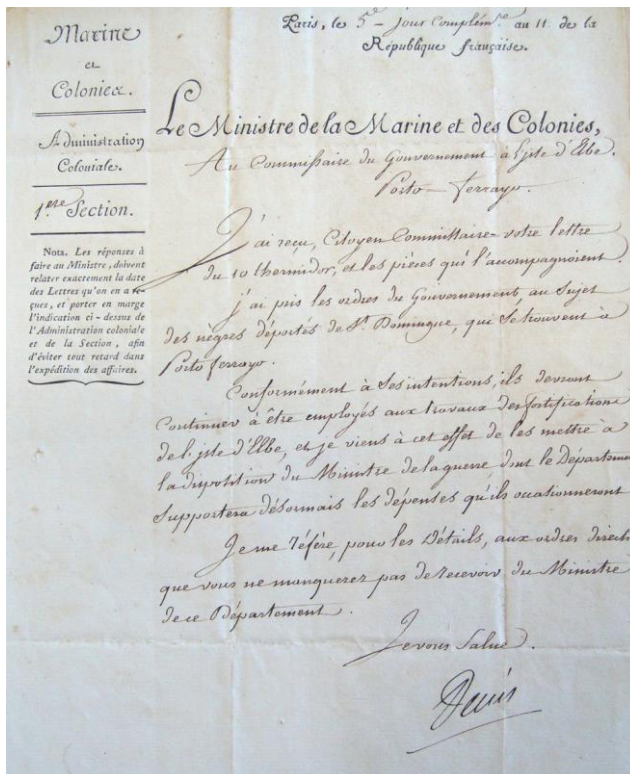 Marine
et
Colonies.
Administration
Coloniale.
1.ere Section.
Nota. Les réponses à
faire au Ministre, doivent
relater exactement la date
des Lettres qu'on en a re-
çues, et porter en marge
l'indication ci-dessus de
l'Administration coloniale
et de la Section, afin
d'éviter tout retard dans
l'expédition des affaires.
Paris, le 5e Jour Complém.re an 11. de la
République française.
Le Ministre de la Marine et des Colonies,
Au Commissaire du Gouvernement à l'isle d'Elbe.
Porto-ferrayo.
J'ai reçu, Citoyen Commissaire votre lettre
du 10 thermidor, et les pièces qui l'accompagnoient.
j'ai pris les ordres du Gouvernement, au Sujet
des nègres déportés de St. Domingue, qui Se trouvent à
Porto ferrayo.
Conformément à Ses intentions, ils devront
Continuer à être employés aux travaux des fortifications
de l'isle d'Elbe, et je viens à cet effet de les mettre à
la disposition du Ministre de la guerre dont le Départemen
Supportera désormais les dépenses qu'ils occasionneront
Je me réfère, pour les Détails, aux ordres directs
que vous ne manquerez pas de recevoir du Ministre
de ce Département.
Je vous Salue.